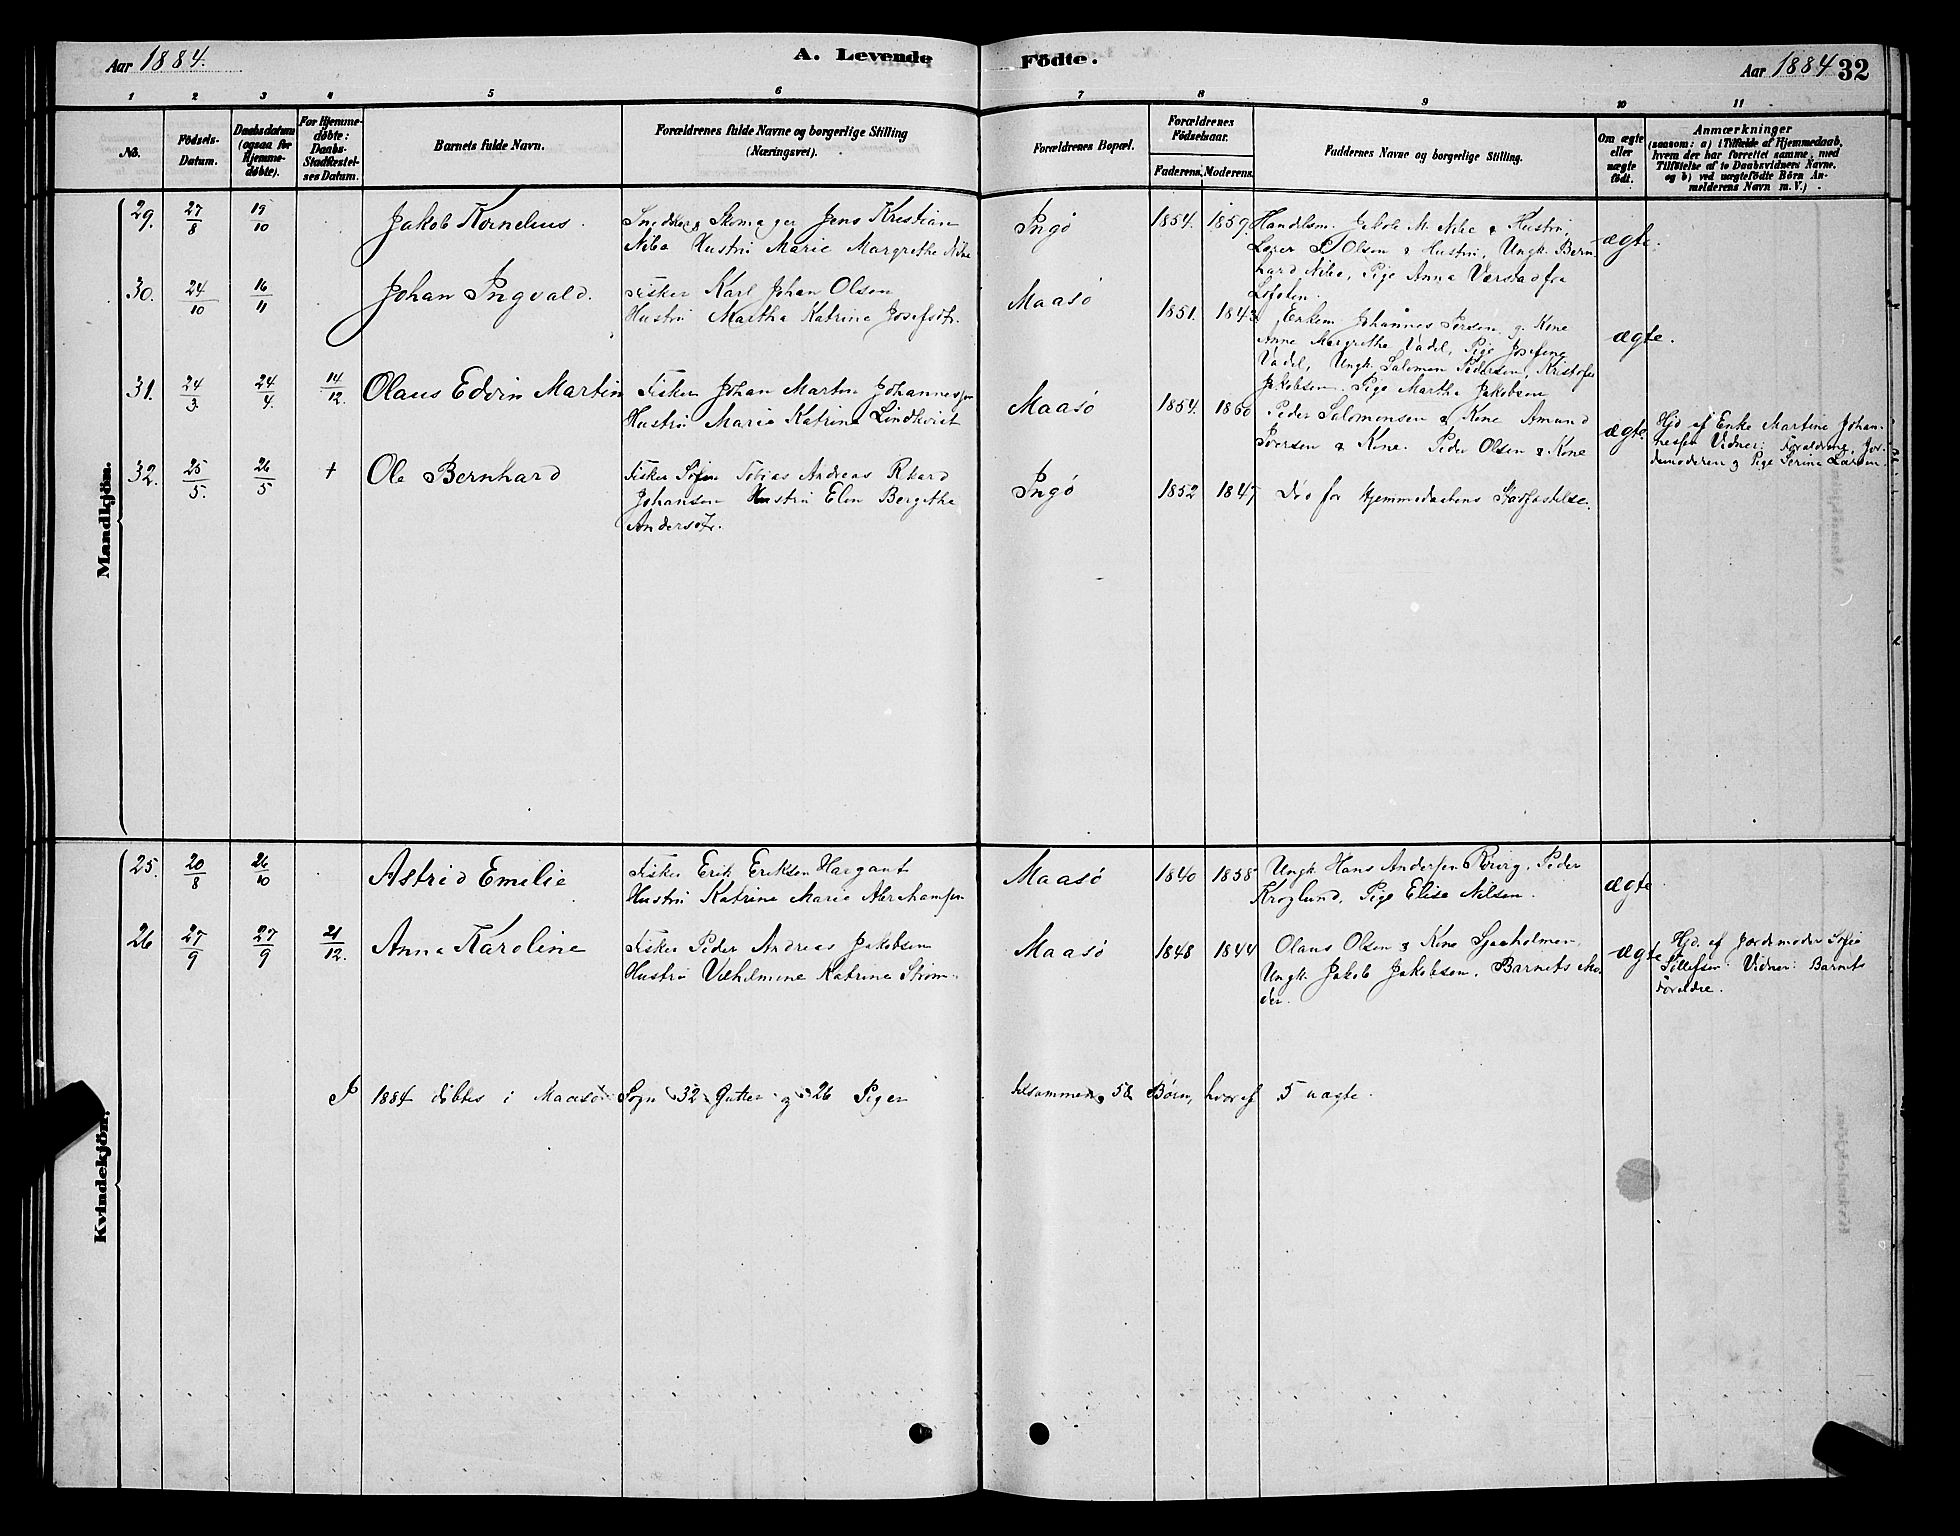 Aar 1884.
A. Levende Födte.
Aar 1884 32
1 2 3 4 5 6 7 8 9 10 11
No.
Födsels-
Datum.
Daabsdatum
(ogsaa for
Hjemme-
døbte).
For Hjemme-
døbte:
Daabs-
Stadfæstel-
ses Datum.
Barnets fulde Navn.
Forældrenes fulde Navne og borgerlige Stilling
(Næringsvei).
Forældrenes Bopæl.
Forældrenes
Födselsaar.
Faderens. Moderens.
Faddernes Navne og borgerlige Stilling.
Om ægte
eller
uægte
født.
Anmærkninger
(saasom: a) i Tilfælde af Hjemmedaab,
hvem der har forrettet samme, med
Tilføielse af to Daabsvidners Navne.
og b) ved uægtefødte Börn An-
melderens Navn m. V.)
Mandkjön.
29. 27/8 19/10 Jakob Kornelius.
Skomager Jens Kristian
Nibo Hustru Marie Margrethe
Ingø 1854. 1859.
Handelsm. Jakob M. & Hustru,
Olsen & Hustru, Ungk. Bern
hard Pige Anna
Lofoten.
ægte.
30. 24/10 16/11 Johan Ingvald.
Fisker Karl Johan Olsen
Hustru Martha Katrine Josefsdtr.
Maasø 1851. 1843
Enkem. Johannes g. Kone
Anne Margrethe Vadel, Pige Josefine
Vadel, Ungk. Salomon Pedersen, Kristofer
Jakobsen. Pige Martha Jakobsen
ægte.
31. 24/3. 24/4. 14/12. Olaus Edvin Martin
Fisker Johan Martin Johannessen
Hustru Marie Katrine Lindkvist
Maasø 1854. 1860
Peder Salomonsen & Kone Amund
Iversen & Kone. Peder Olsen & Kone
ægte.
Hjd af Enke Martine Johan-
nessen Vidner: Forældrene, Jor-
demoderen & Pige Serine Larsen.
32. 25/5. 26/5 + Ole Bernhard
Fisker Tobias Andreas
Johansen Hustru Elen Bergitha
Andersdtr.
Ingø 1852 1847
Død før Hjemmedaabens Stadfæstelse.
Kvindekjön.
25. 20/8 26/10 Astrid Emilie
Fisker Erik Eriksen Hargant
Hustru Katrine Marie Abrahamsen
Maasø 1840 1858
Ungk. Hans Andersen Peder
Kroglund, Pige Elise Nilsen.
ægte
26 27/9 27/9 21/12. Anna Karoline
Fisker Peder Andreas Jakobsen
Hustru Vilhelmine Katrine Strøm.
Maasø 1848 1844
Olaus Olsen & Kone Sjaaholmen,
Ungk. Jakob Jakobsen. Barnets Mo
der.
ægte
Hjd. af Jordemoder Sofie
Tollefsen. Vidner: Barnets
Forældre.
I 1884 døbtes i Maasø Sogn 32 Gutter og 26 Piger tilsammen 58 Børn, hvoraf 5 uægte.